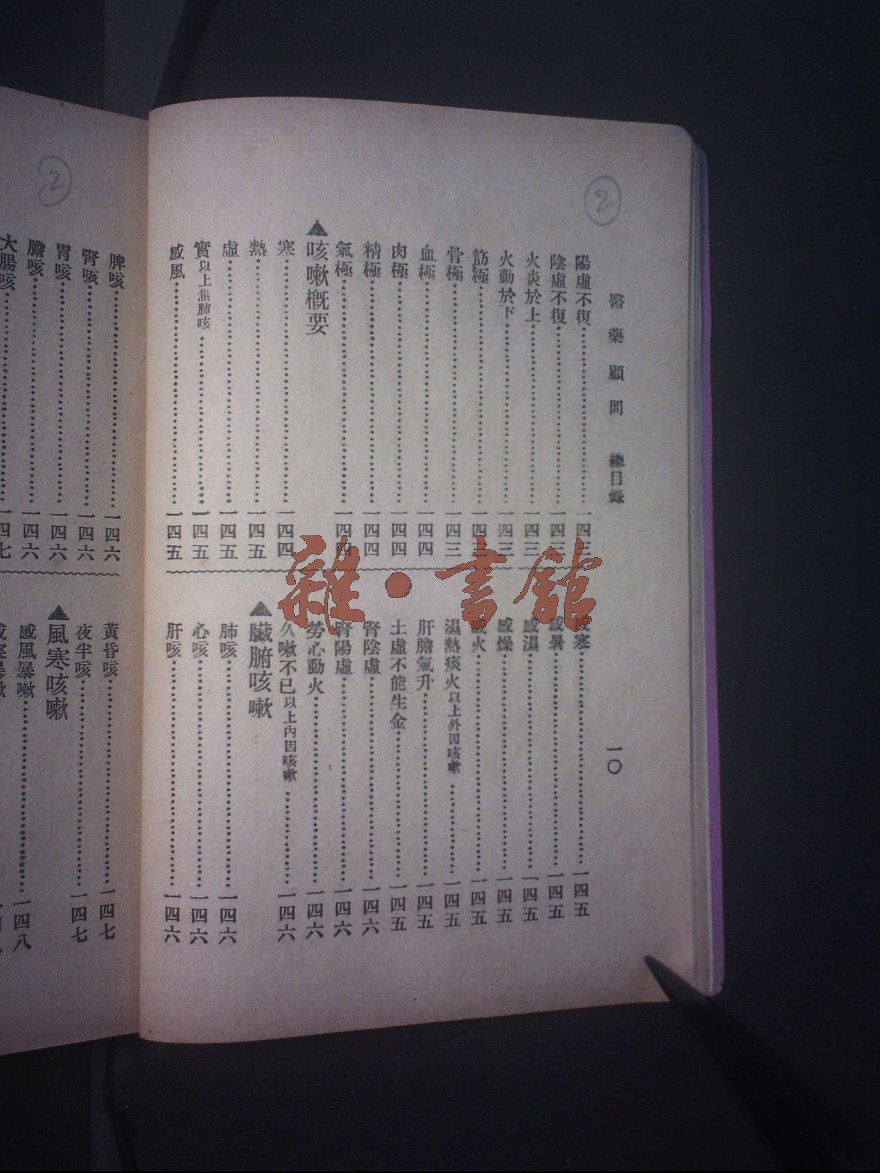 醫藥顧問 總目錄 一〇
2
陽虛不復 一四三
陰虛不復 一四三
火炎於上 一四三
火動於下 一四三
筋極 一四三
骨極 一四三
血極 一四四
肉極 一四四
精極 一四四
氣極 一四四
▲咳嗽概要
寒 一四四
熱 一四五
虛 一四五
實以上集肺咳 一四五
感風 一四五
感寒 一四五
感暑 一四五
感濕 一四五
感燥 一四五
感火 一四五
濕熱痰火以上外因咳嗽 一四五
肝膽氣升 一四五
土虛不能生金 一四五
腎陰虛 一四六
腎陽虛 一四六
勞心動火 一四六
久嗽不已以上內因咳嗽 一四六
▲臟腑咳嗽
肺咳 一四六
心咳 一四六
肝咳 一四六
2
脾咳 一四六
腎咳 一四六
胃咳 一四六
膽咳 一四六
大腸咳 一四七
黃昏咳 一四七
夜半咳 一四七
▲風寒咳嗽
感風暴嗽 一四八
感寒暴嗽
雜·書館